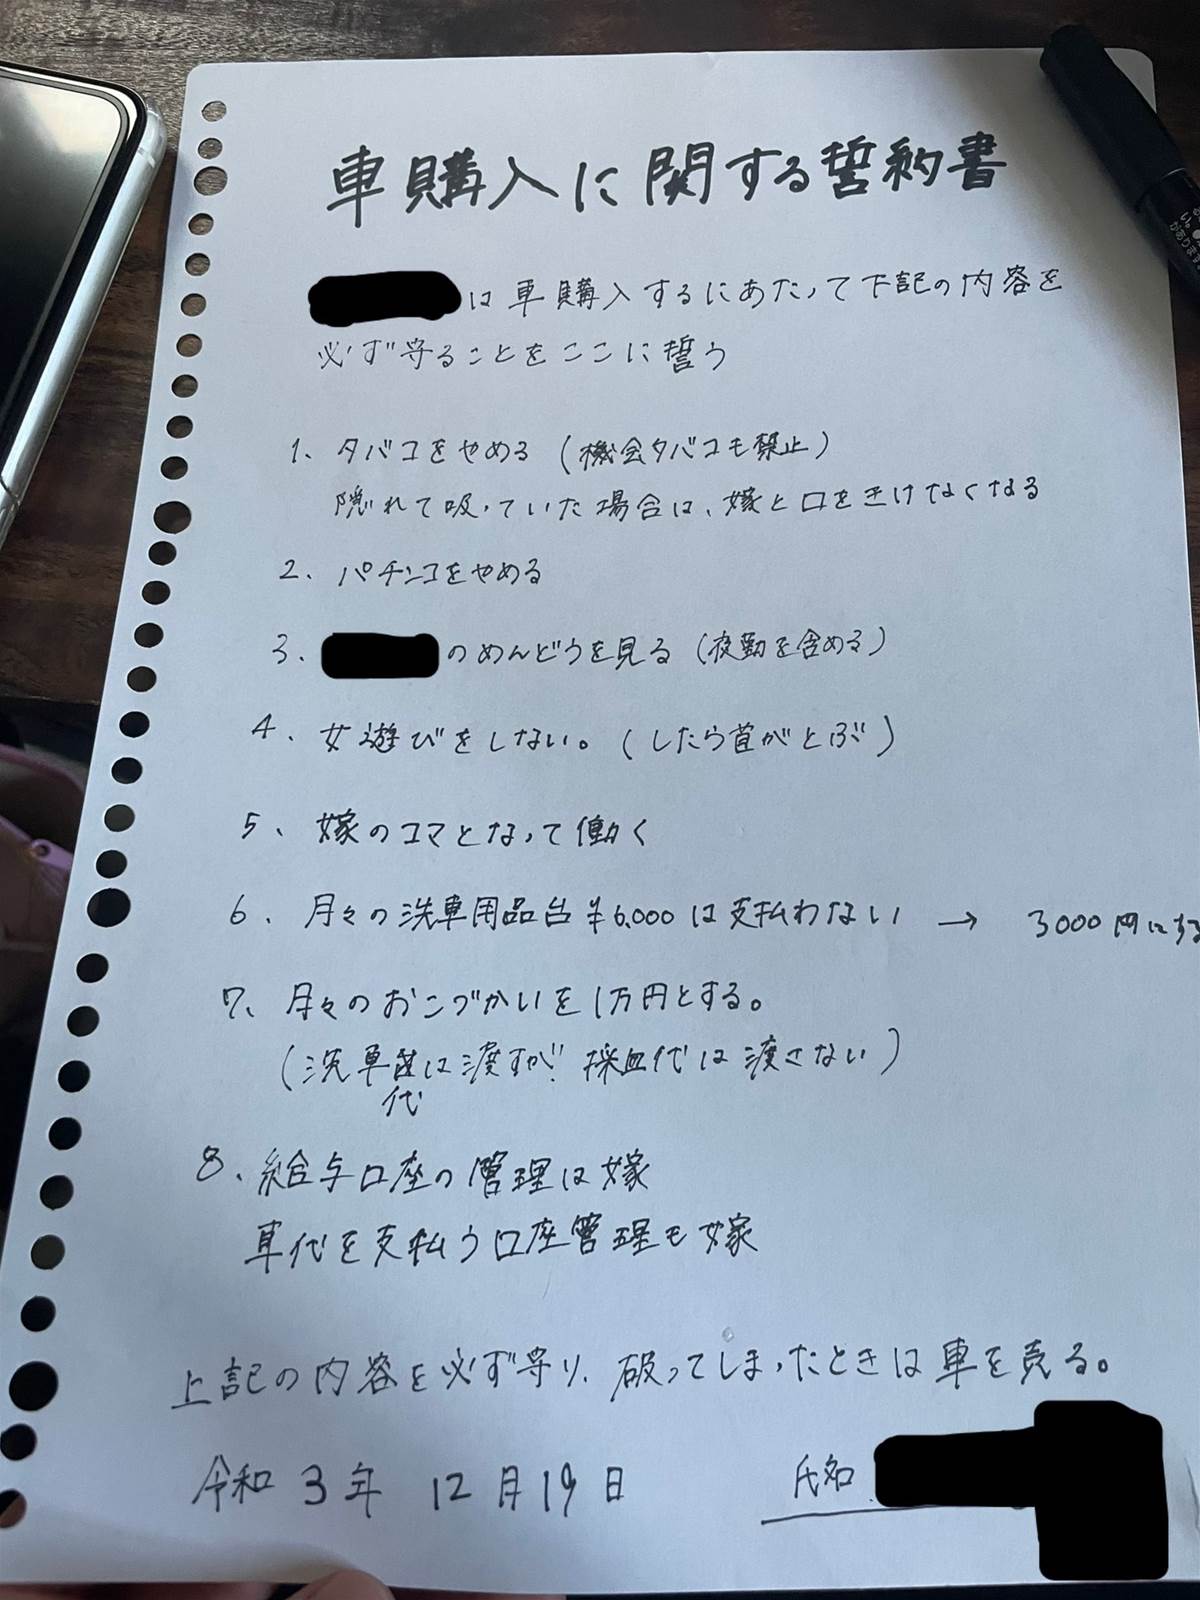 車購入に関する誓約書
は車購入するにあたって下記の内容を
必ず守ることをここに誓う
1、タバコをやめる（機会タバコも禁止）
隠れて吸っていた場合は、嫁と口をきけなくなる
2、パチンコをやめる
3、のめんどうを見る（夜勤を含める）
4、女遊びをしない。（したら首がとぶ）
5、嫁のコマとなって働く
6、月々の洗車用品台¥6,000は支払わない → 3000円にする
7、月々のおこづかいを1万円とする。
（洗車代は渡すが採血代は渡さない）
8、給与口座の管理は嫁
車代を支払う口座管理も嫁
上記の内容を必ず守り、破ってしまったときは車を売る。
令和3年 12月19日 氏名